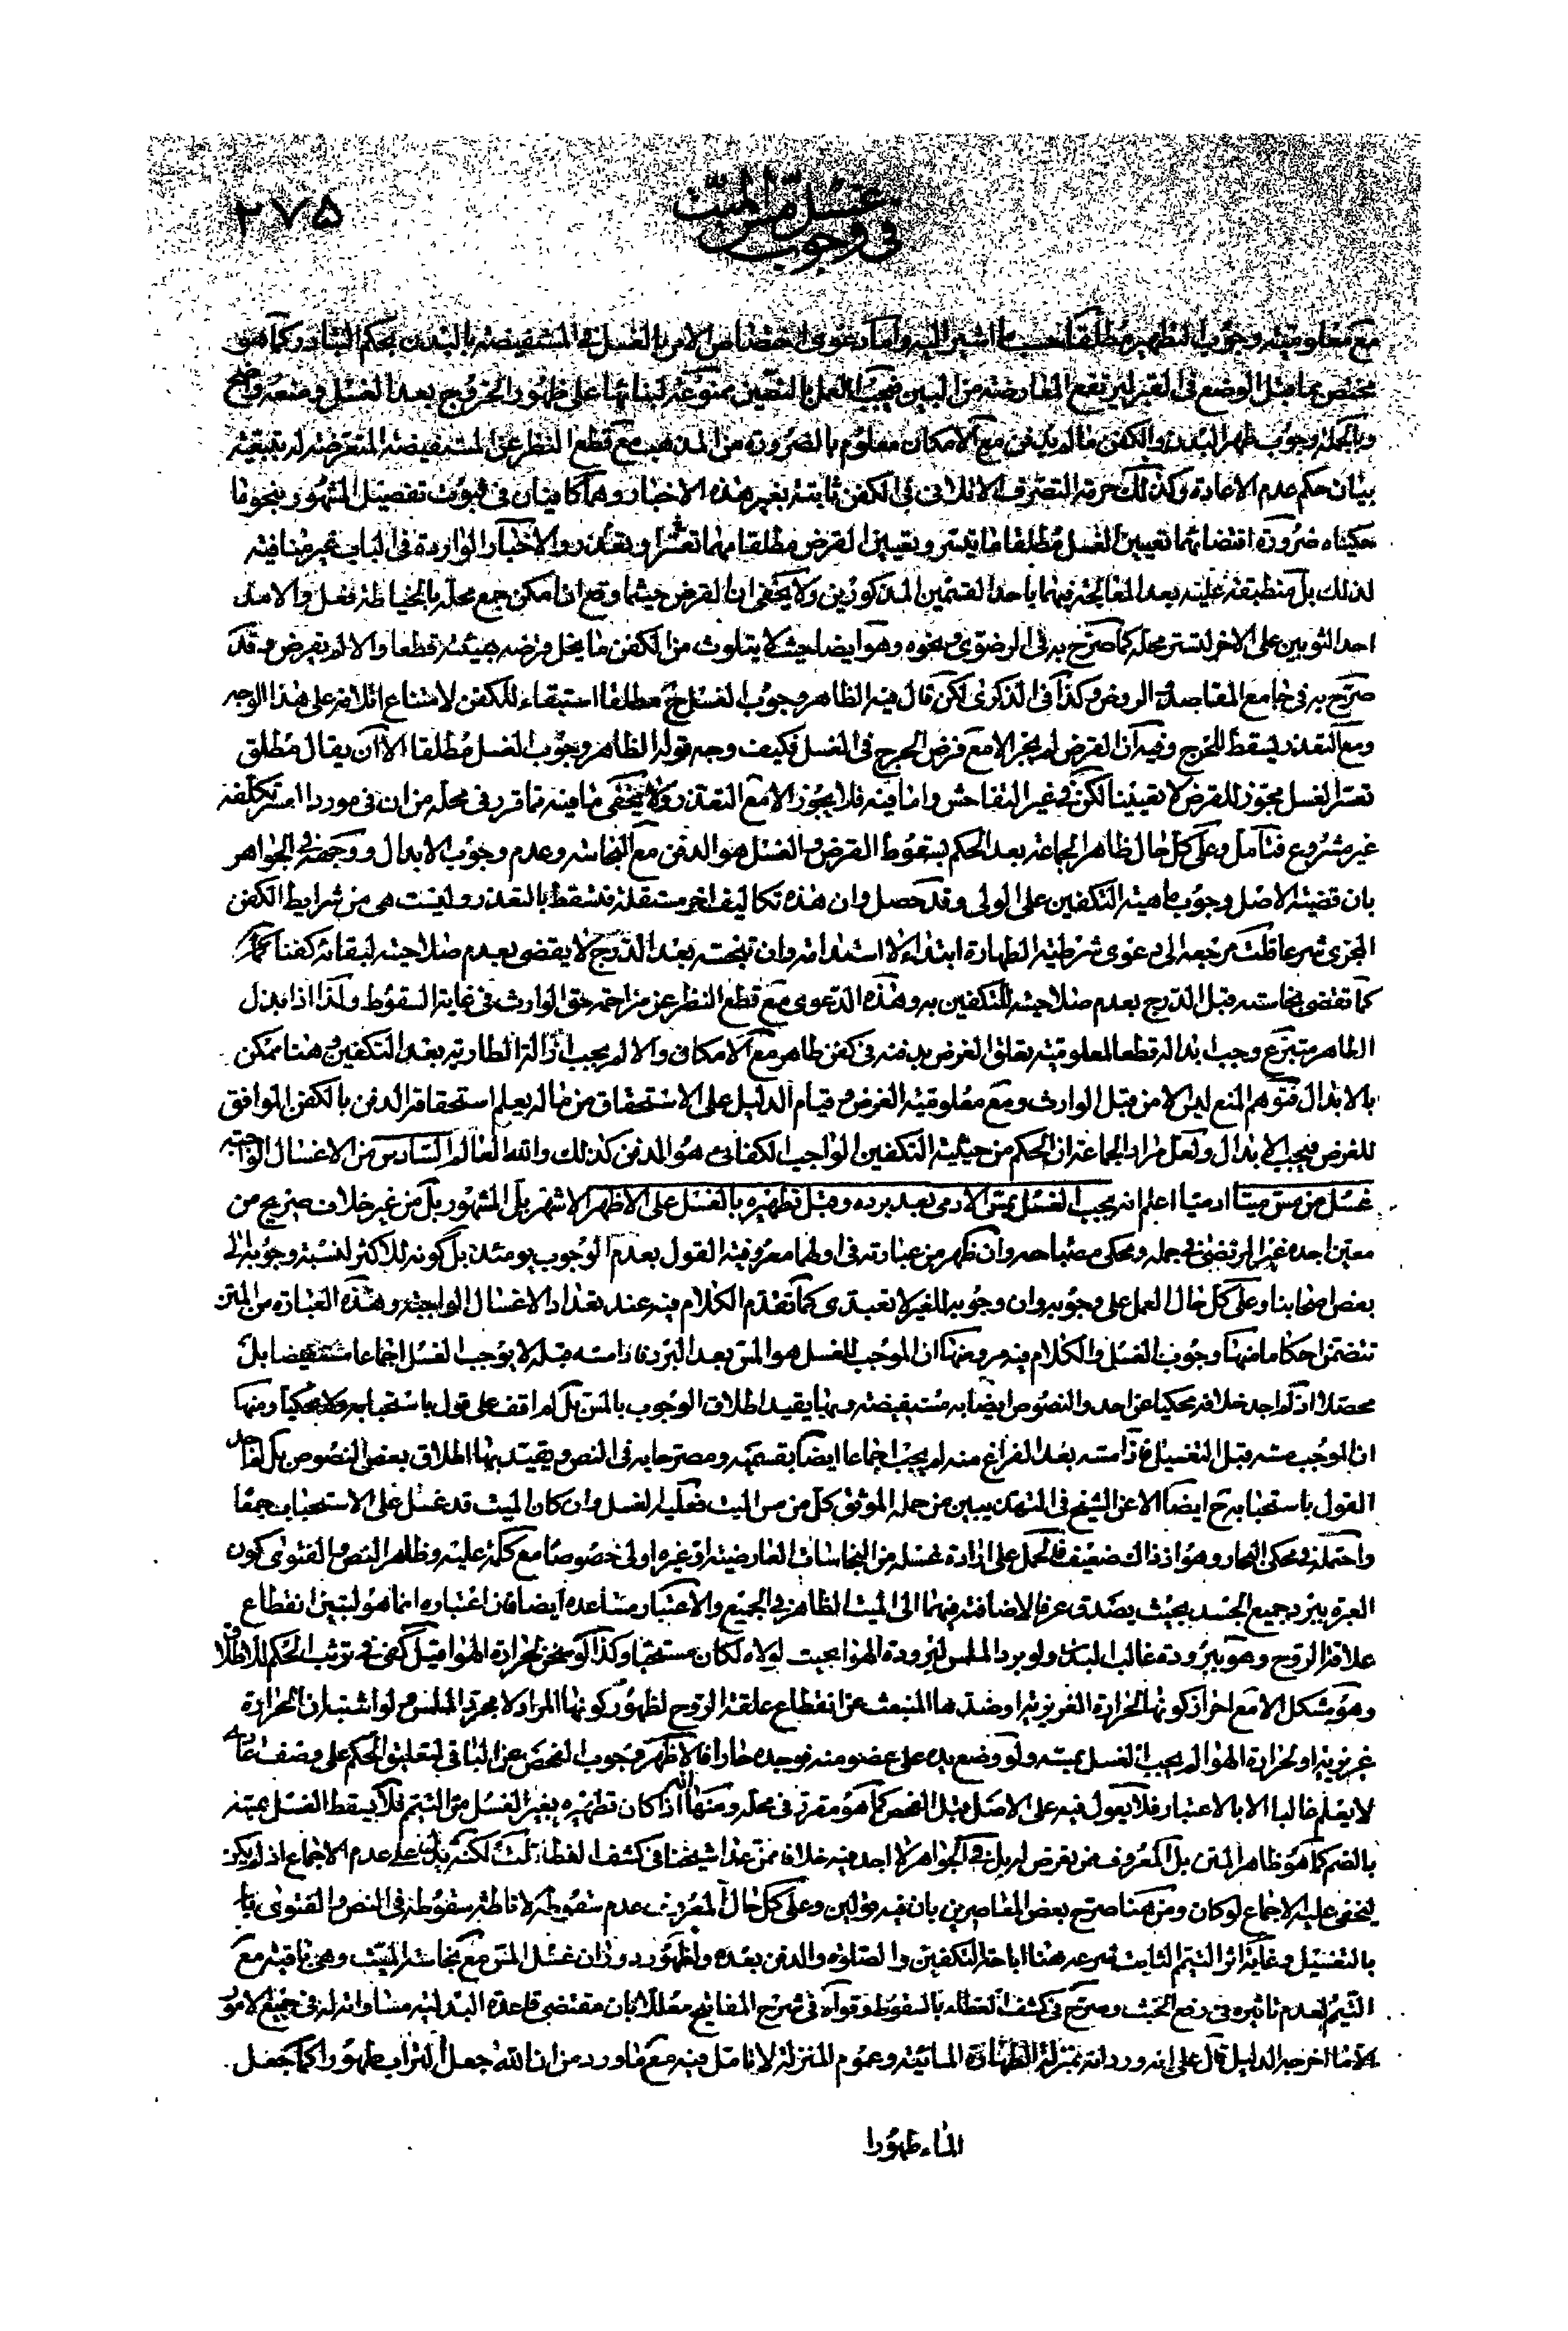 في وجوب غسل مس الميت
٢٧٥
مع معلومية وجوب التطهير مطلقا حسب ما اشير اليه واما دعوى اختصاص الامر بالغسل في المستفيضة بالبدن بحكم التبادر كما هو
مختص بما قبل الوضع في القبر ليرتفع المعارضة من البين فيجب العمل بالنصين ممنوعة لبنائها على ظهور الخروج بعد الغسل و منعه واضح
وبالجملة وجوب طهر البدن والكفن ما لم يدفن مع الامكان معلوم بالضرورة من المذهب مع قطع النظر عن المستفيضة المتعرضة له بتبعية
بيان حكم عدم الاعادة وكذلك حرمة التصرف الاتلافي في الكفن ثابتة بغير هذه الاخبار وهما كافيان في ثبوت تفصيل المشهور بنحو ما
حكيناه ضرورة اقتضائهما تعيين الغسل مطلقا ما يتيسر وتعيين القرض مطلقا مهما تعسر او تعذر والاخبار الواردة في الباب غير منافية
لذلك بل منطبقة عليه بعد المعالجة فيهما باحد القسمين المذكورين ولا يخفى ان القرض حيثما وقع ان امكن جمع محله بالخياطة فعل والا مد
احد الثوبين على الاخر لتستر محله كما صرح به في الرضوي ونحوه وهو ايضا بحيث لا يتلوث من الكفن ما يخل قرضه بهيئته قطعا والا لم يقرض وقد
صرح به في جامع المقاصد الروض وكذا في الذكرى لكن قال فيه الظاهر وجوب الغسل ح مطلقا استبقاء للكفن لامتناع اتلافه على هذا الوجه
ومع التعذر يسقط للحرج وفيه ان القرض لم يجز الا مع فرض الحرج في الغسل فكيف وجه قوله الظاهر وجوب الغسل مطلقا الا ان يقال مطلق
تعسر الغسل مجوز للقرض لا تعيينا لكن في غير المتفاحش واما فيه فلا يجوز الا مع التعذر ولا يخفى ما فيه مما قرر في محله من ان في مورد العسر تكلفه
غير مشروع فتامل وعلى كل حال ظاهر الجماعة بعد الحكم بسقوط القرض والغسل هو الدفن مع النجاسة وعدم وجوب الابدال ووجهه في الجواهر
بان قضية الاصل وجوب ماهية التكفين على الولي وقد حصل وان هذه تكاليف اخر مستقلة فتسقط بالتعذر وليست هي من شرايط الكفن
المجزي شرعا قلت مرجعه الى دعوى شرطية الطهارة ابتداء لا استدامة وان نجسته بعد الدرج لا يقضى بعدم صلاحيته لبقائه كفنا
كما تقضي نجاسته قبل الدرج بعدم صلاحيته للتكفين به وهذه الدعوى مع قطع النظر عن مزاحمة حق الوارث في غاية السقوط ولذا اذا بذل
الطاهر متبرع وجب بداله قطعا لمعلومية تعلق الغرض بدفنه في كفن طاهر مع الامكان والا لم يجب ازالة الطارية بعد التكفين وهنا ممكن
بالابدال فتوهم المنع ليس الا من قبل الوارث ومع معلومية الغرض و قيام الدليل على الاستحقاق من ماله يعلم استحقاقه الدفن بالكفن الموافق
للغرض فيجب الابدال ولعل مراد الجماعة ان الحكم من حيثية التكفين الواجب الكفائي هو الدفن كذلك والله العالم السادس من الاغسال الواجبة
غسل من مس ميتا ادميا اعلم انه يجب الغسل بمس الادمي بعد برده وقبل تطهيره بالغسل على الاظهر الاشهر بل المشهور بل من غير خلاف صريح من
معين اجده غير المرتضى في جمله ومحكي مصباحه وان ظهر من عبارته في اولهما معروفية القول بعدم الوجوب يومئذ بل كونه للاكثر لنسبة وجوبه الى
بعض اصحابنا وعلى كل حال العمل على وجوبه وان وجوبه للغير لا تعبدي كما تقدم الكلام فيه عند تعداد الاغسال الواجبة وهذه العبارة من المتن
تتضمن احكاما منها وجوب الغسل والكلام فيه مر ومنها ان الموجب للغسل هو المس بعد البرد فاذا مسه قبله لا يوجب الغسل اجماعا مستفيضا بل
محصلا اذ لم اجد خلافه محكيا عن احد والنصوص ايضا به مستفيضة وبها يقيد اطلاق الوجوب بالمس بل لم اقف على قول باستحبابه ولا محكيا ومنها
ان الموجب مسه قبل التغسيل فاذا مسه بعد الفراغ منه لم يجب اجماعا ايضا بقسميه ومصرحا به في النص ويقيد بهما اطلاق بعض النصوص بل لم اجد
القول باستحبابه ح ايضا الا عن الشيخ في التهذيبين من حمله الموثق كل من مس الميت فعليه الغسل وان كان الميت قد غسل على الاستحباب جمعا
واحتمله في محكي البحار وهو اذ ذاك ضعيف فالحمل على ارادة غسله من النجاسات العارضية او غيره اولى خصوصا مع كلمة عليه وظاهر النص والفتوى كون
العبرة ببرد جميع الجسد بحيث يصدق عرفا لاضافته فيهما الى الميت الظاهر في الجميع والاعتبار مساعده ايضا فان اعتباره انما هو لتبين انقطاع
علاقة الروح وهو ببرودة غالب البدن ولو برد الملمس لبرودة الهواء بحيث لولاه لكان مستحبا وكذا لو سخن لحرارة الهواء قيل كفى في ترتب الحكم للاطلاق
وهو مشكل الا مع احراز كونها الحرارة الغريزية او ضدها المنبعث عن انقطاع علقة الروح لظهور كونها المراد لا مجرد الملمس ولو اشتبه ان الحرارة
غريزية او لحرارة الهواء لم يجب الغسل بمسه ولو وضع يده على عضو منه فوجده حارا فالاظهر وجوب الفحص عن الباقي لتعليق الحكم على وصف
لا يعلم غالبا الا بالاعتبار فلا يعول فيه على الاصل قبل الفحص كما هو مقرر في محله ومنها انه اذا كان تطهيره بغير الغسل من التيمم فلا يسقط الغسل بمسه
بالضم كما هو ظاهر المتن بل المعروف ممن تعرض له بل في الجواهر لا اجد فيه خلافا ممن عدا شيخنا في كشف الغطاء قلت لكنه يدل على عدم الاجماع اذ لم يكن
ليخفى عليه الاجماع لو كان ومن هنا صرح بعض المعاصرين بان فيه قولين وعلى كل حال المعروف عدم سقوطه لاناطة سقوطه في النص والفتوى
بالتغسيل وغاية اثر التيمم الثابت شرعه هنا اباحة التكفين والصلوة والدفن بعده ولظهور دوران غسل المس مع نجاسة الميت وهي باقية مع
التيمم لعدم تاثيره في رفع الخبث وصرح في كشف الغطاء بالسقوط وقواه في شرح المفاتيح معللا بان مقتضى قاعدة البدلية مساواته له في جميع الامور
الا ما اخرجه الدليل قال على انه ورد انه بمنزلة الطهارة المائية وعموم المنزلة لا تامل فيه مع ما ورد من ان الله جعل التراب طهورا كما جعل
الماء طهورا